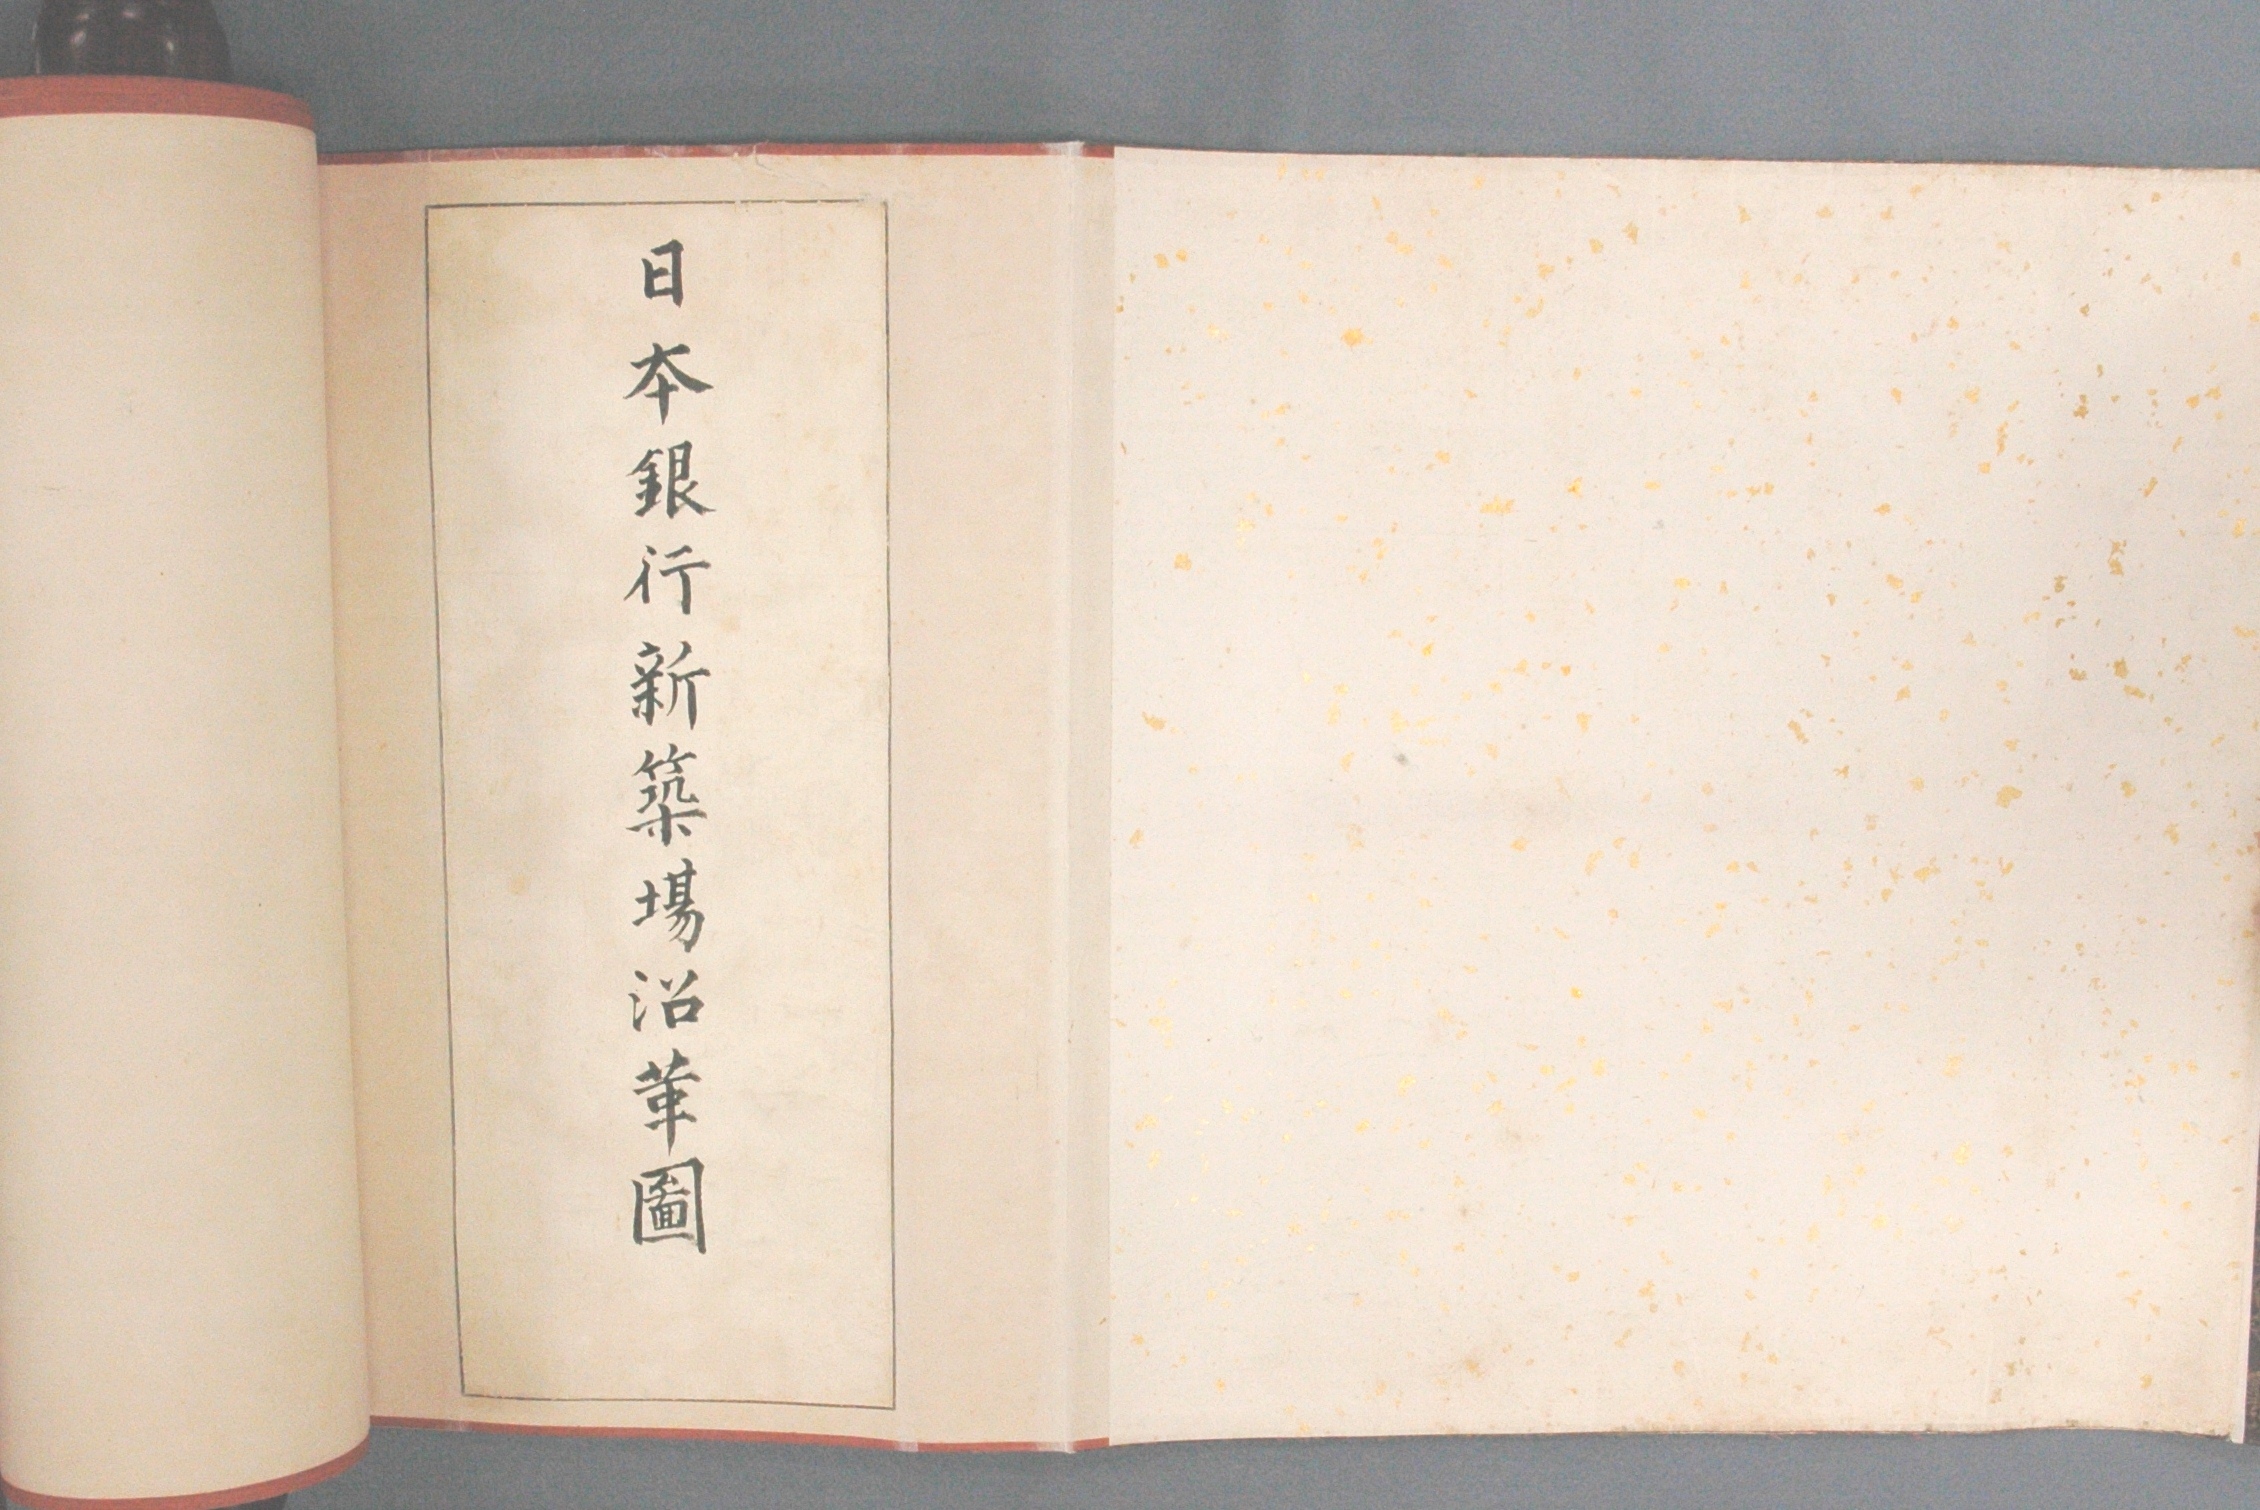 日本銀行新築場沿革圖